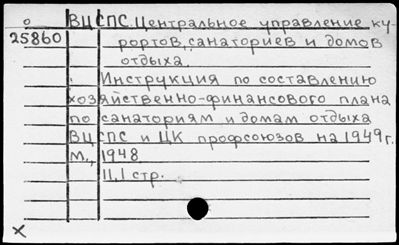 ВЦСПС. Центральное управление ку-
25860 рортов, санаториев и домов
отдыха.
Инструкция по составлению
хозяйственно-финансового плана
по санаториям и домам отдыха
ВЦСПС и ЦК профсоюзов на 1949 г.
М., 1948
11,1 стр.